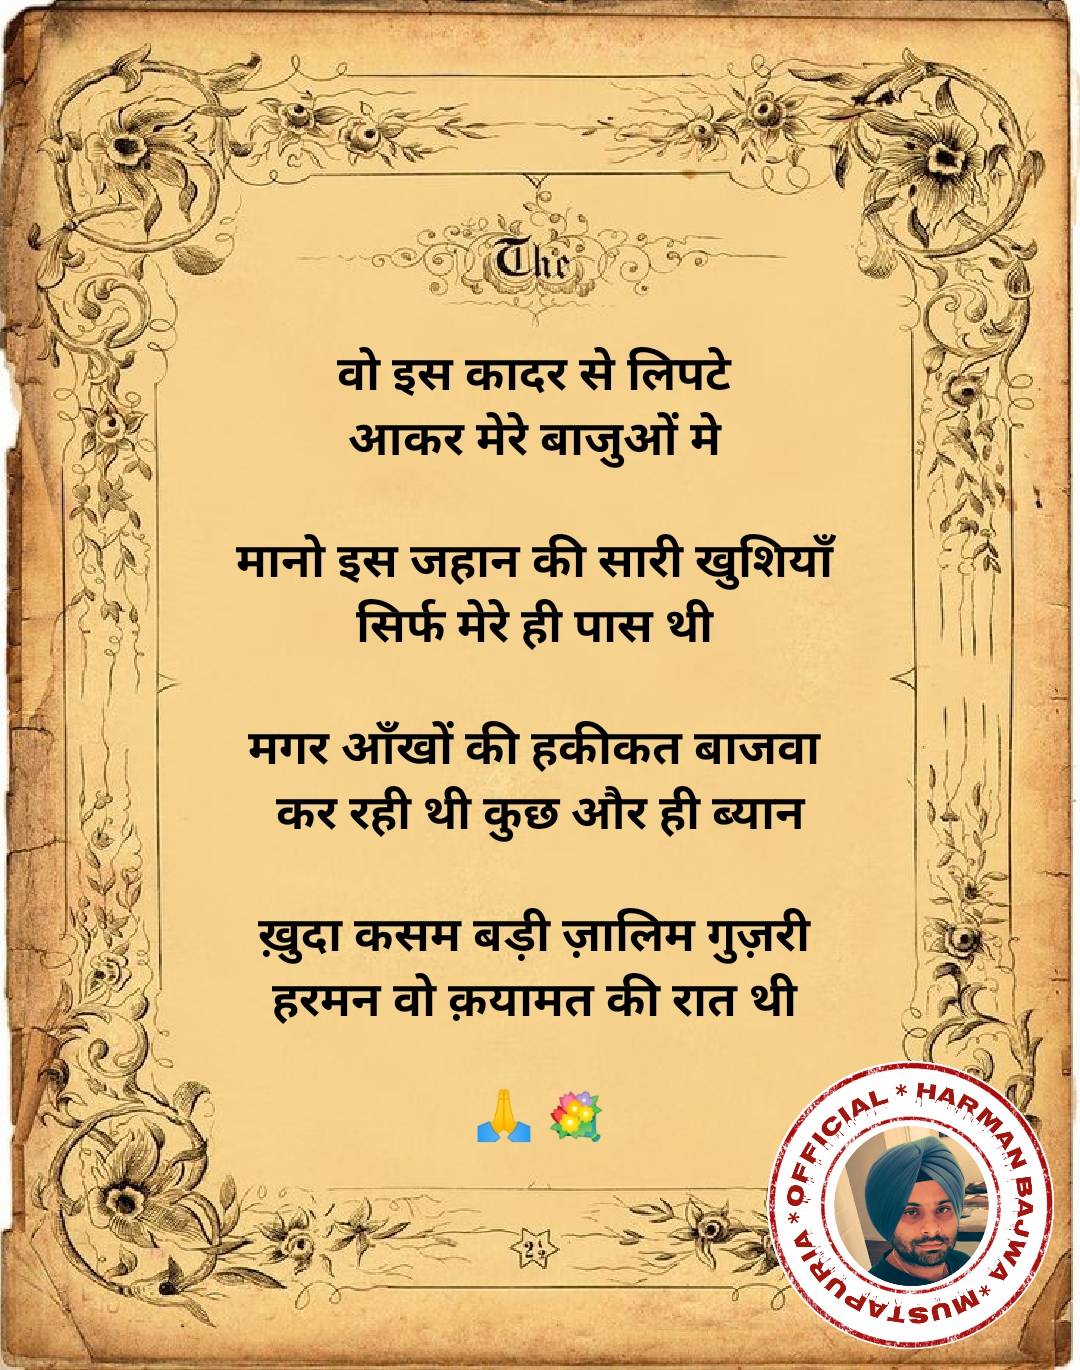 The
वो इस कादर से लिपटे
आकर मेरे बाजुओं मे
मानो इस जहान की सारी खुशियाँ
सिर्फ मेरे ही पास थी
मगर आँखों की हकीकत बाजवा
कर रही थी कुछ और ही ब्यान
ख़ुदा कसम बड़ी ज़ालिम गुज़री
हरमन वो क़यामत की रात थी
🙏 💐
* OFFICIAL * HARMAN BAJWA * MUSTAPURIA